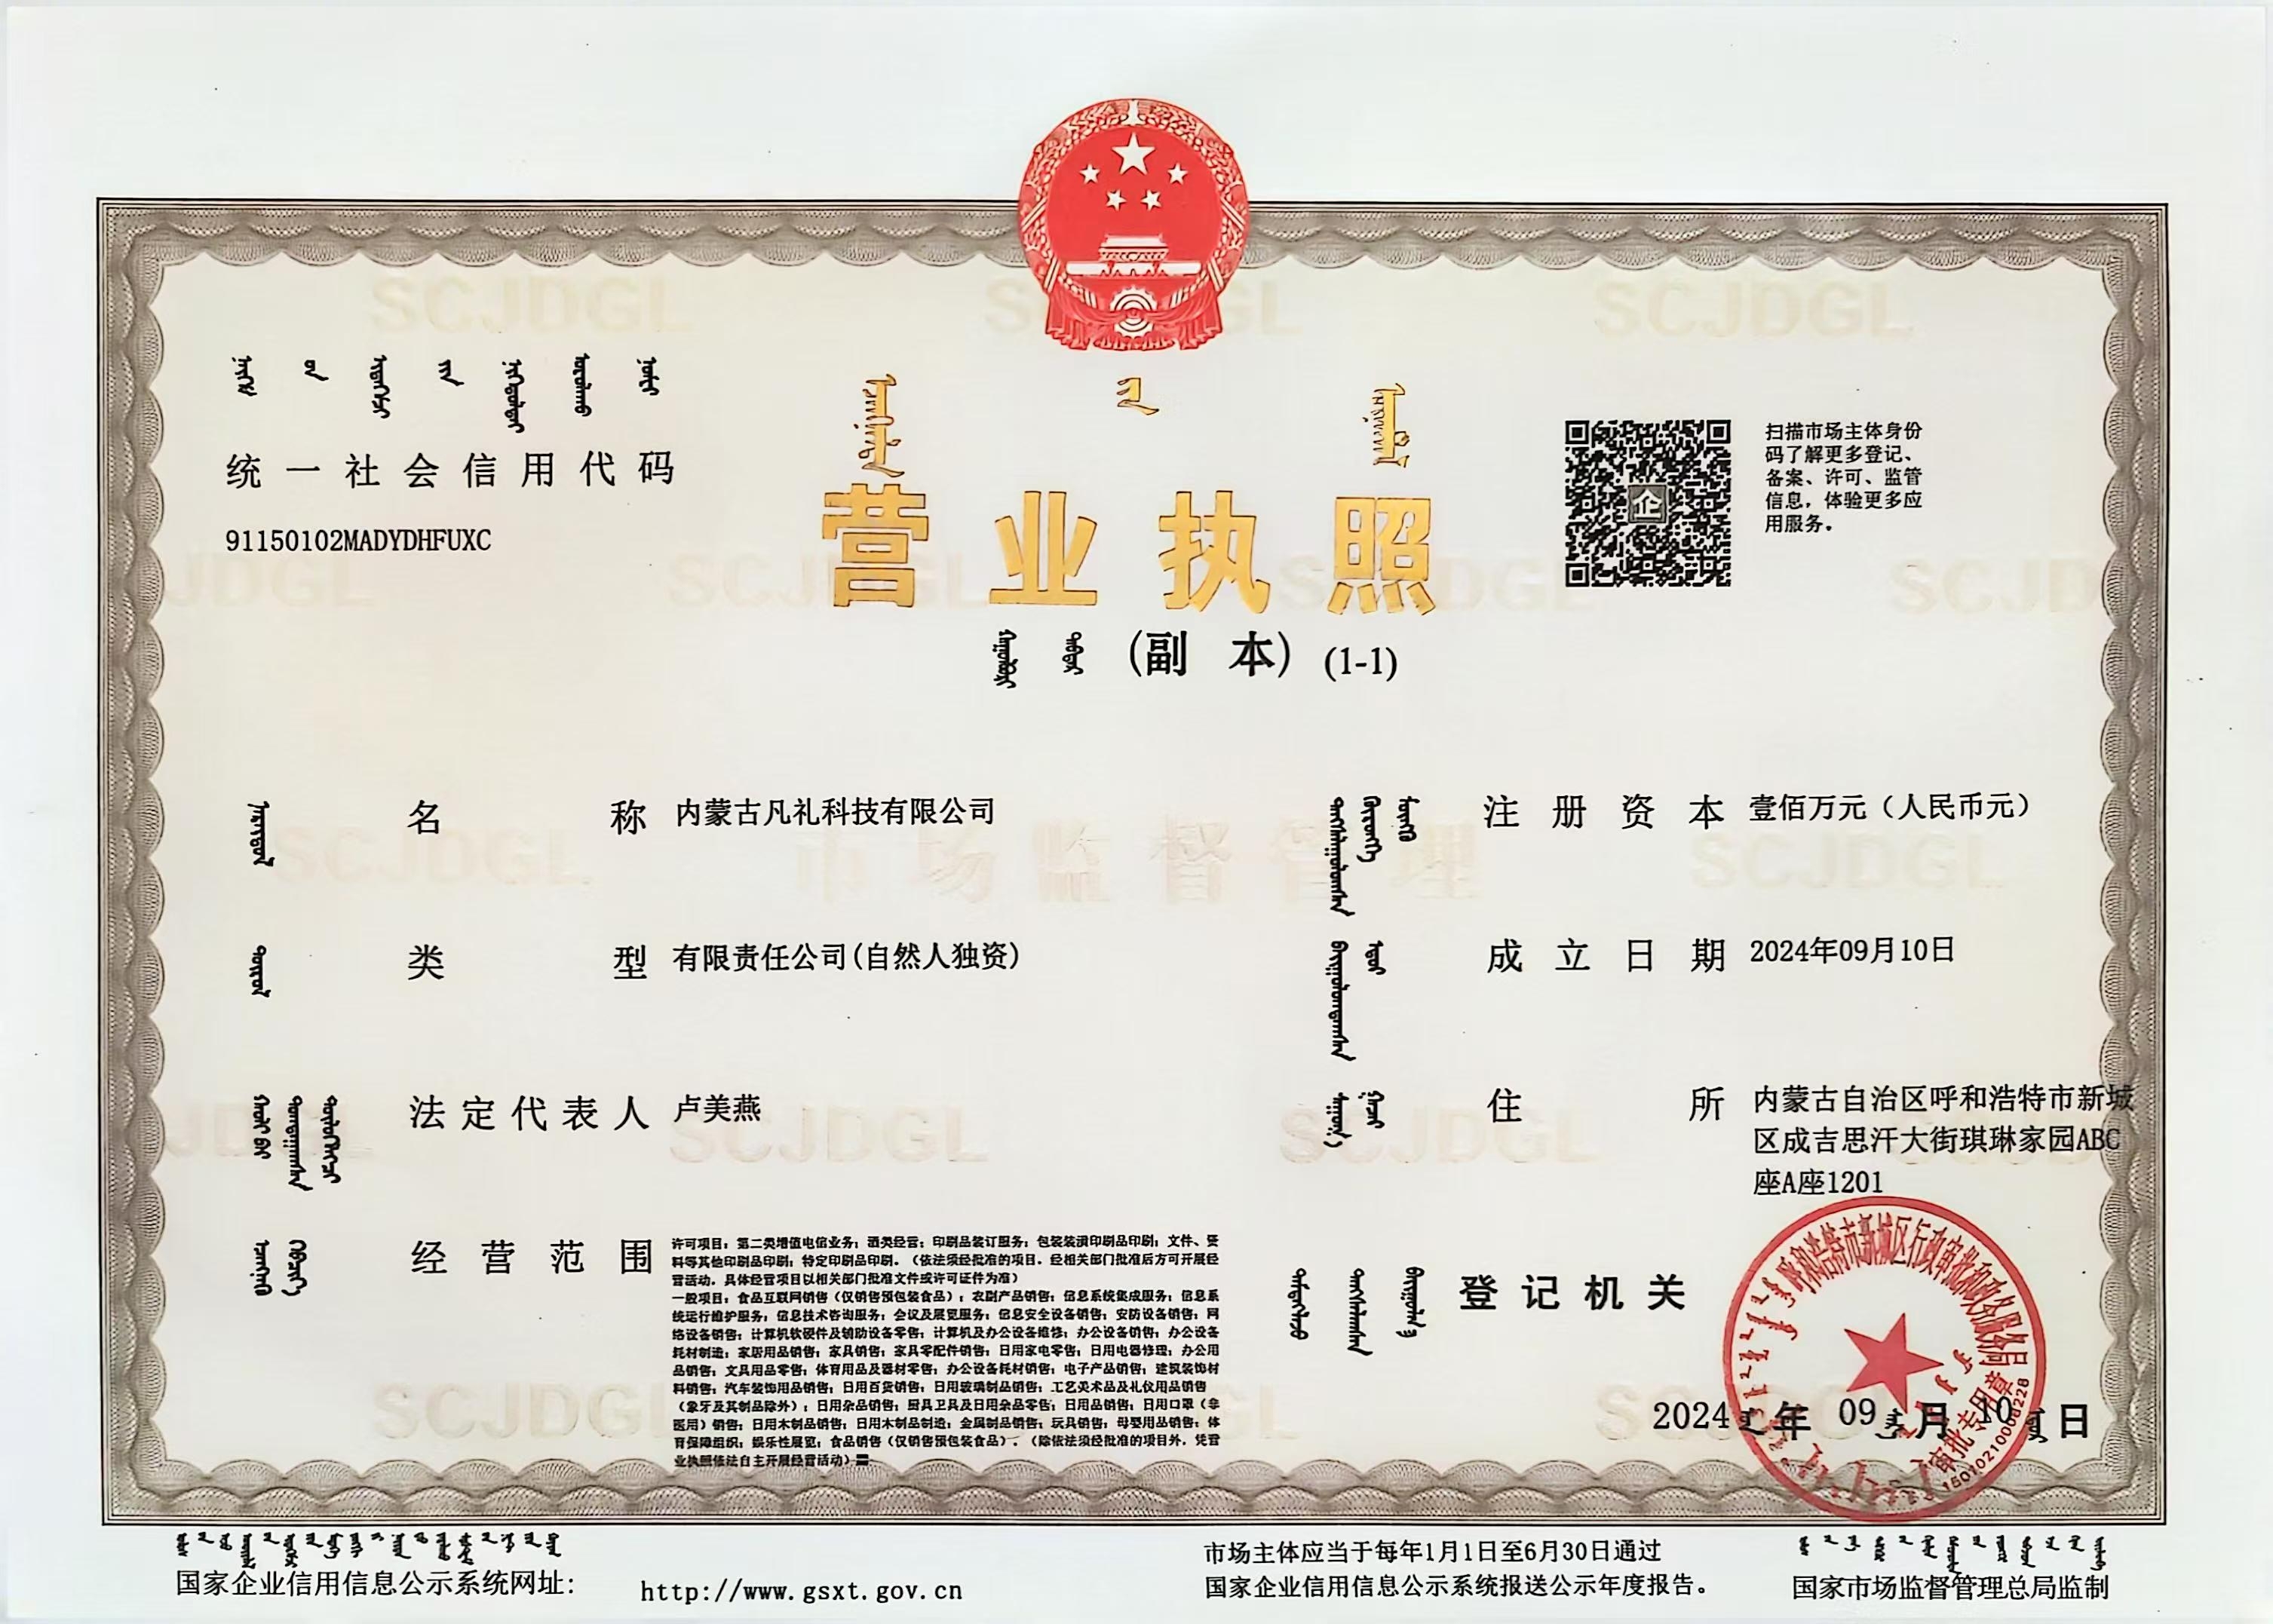 统一社会信用代码
91150102MADYDHFUXC
营业执照
(副 本) (1-1)
扫描市场主体身份
码了解更多登记、
备案、许可、监管
信息，体验更多应
用服务。
名 称 内蒙古凡礼科技有限公司
类 型 有限责任公司(自然人独资)
法定代表人 卢美燕
经营范围
许可项目：第二类增值电信业务；酒类经营；印刷品装订服务；包装装潢印刷品印刷；文件、资
料等其他印刷品印刷；特定印刷品印刷。（依法须经批准的项目，经相关部门批准后方可开展经
营活动，具体经营项目以相关部门批准文件或许可证件为准）
一般项目：食品互联网销售（仅销售预包装食品）；农副产品销售；信息系统集成服务；信息系
统运行维护服务；信息技术咨询服务；会议及展览服务；信息安全设备销售；安防设备销售；网
络设备销售；计算机软硬件及辅助设备零售；计算机及办公设备维修；办公设备销售；办公设备
耗材制造；家居用品销售；家具销售；家具零配件销售；日用家电零售；日用电器修理；办公用
品销售；文具用品零售；体育用品及器材零售；办公设备耗材销售；电子产品销售；建筑装饰材
料销售；汽车装饰用品销售；日用百货销售；日用玻璃制品销售；工艺美术品及礼仪用品销售
（象牙及其制品除外）；日用杂品销售；厨具卫具及日用杂品零售；日用品销售；日用口罩（非
医用）销售；日用木制品销售；日用木制品制造；金属制品销售；玩具销售；母婴用品销售；体
育保障组织；娱乐性展览；食品销售（仅销售预包装食品）。（除依法须经批准的项目外，凭营
业执照依法自主开展经营活动）
注册资本 壹佰万元（人民币元）
成立日期 2024年09月10日
住 所 内蒙古自治区呼和浩特市新城
区成吉思汗大街琪琳家园ABC
座A座1201
登记机关
呼和浩特市新城区行政审批和政务服务局
审批专用章
15010210008228
2024年09月10日
国家企业信用信息公示系统网址：
http://www.gsxt.gov.cn
市场主体应当于每年1月1日至6月30日通过
国家企业信用信息公示系统报送公示年度报告。
国家市场监督管理总局监制
SCJDGL
市场监督管理